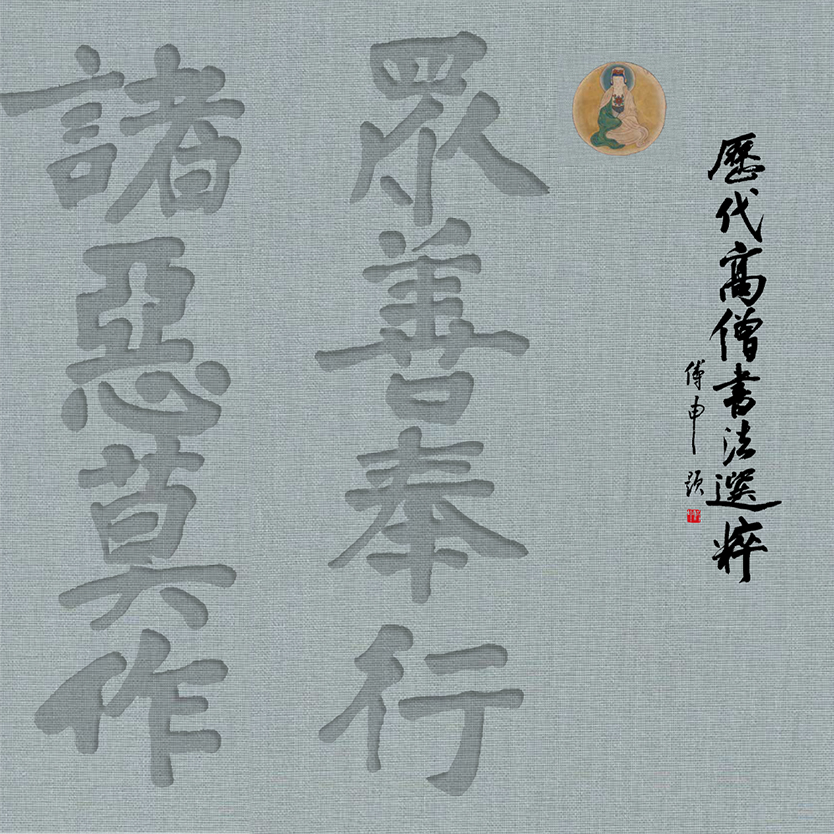 歷代高僧書法選粹
傅申題
眾善奉行
諸惡莫作